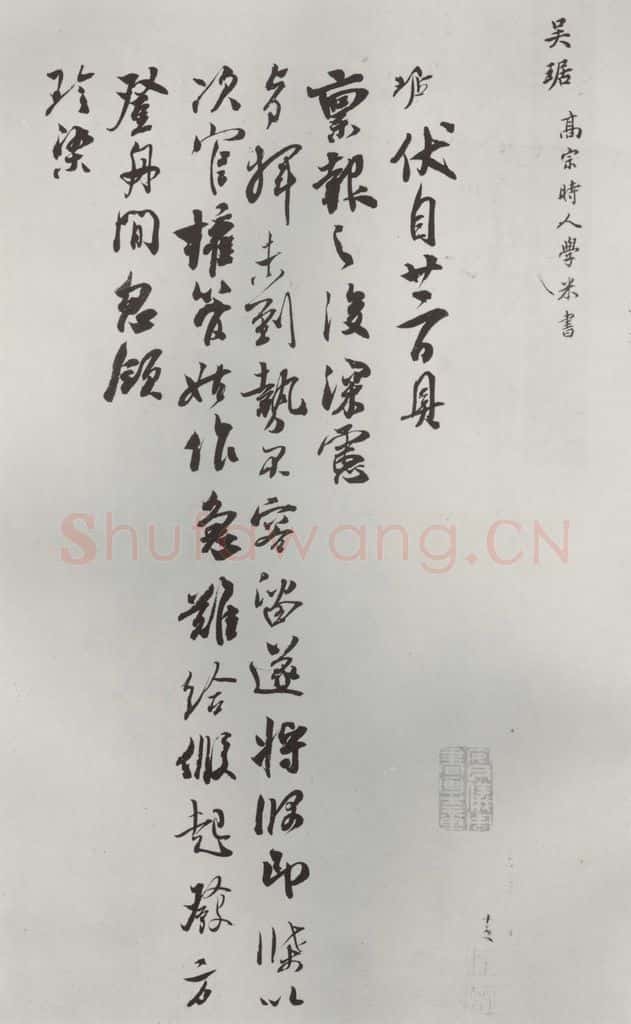 吴琚 高宗時人學米書
琚 伏自廿二日具
稟報之後深慮
指揮未到勢不容留遂將牌印牒以
次官權管始作急難給假起發方
登舟間忽領
珍染
Shufawang.CN